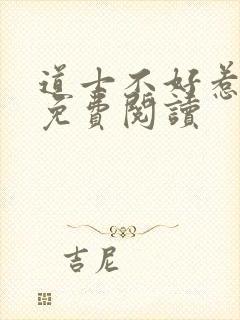 道士不好惹
免費閱讀
吉尼